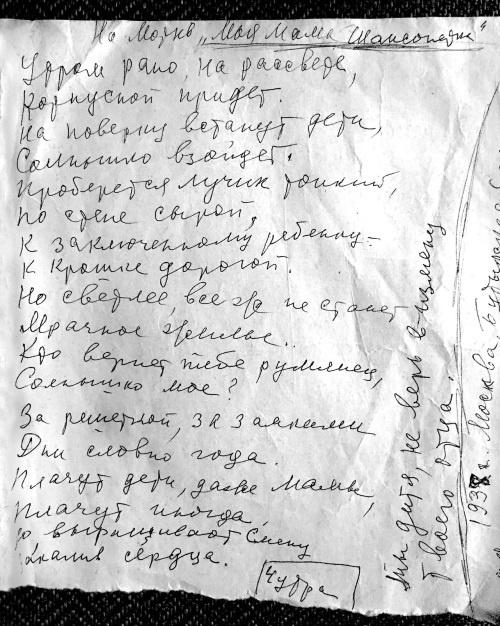 На мотив „Моя мама Шансонетка“
Утром рано, на рассвете,
Корпусной придет.
На поверку встанут дети,
Солнышко взойдет.
Проберется лучик тонкий,
По стене сырой,
К заключенному ребенку –
К крошке дорогой.
Но светлее, все же не станет
Мрачное жилье..
Кто вернет тебе румянец,
Солнышко мое?
За решеткой, за замками
Дни словно года.
Плачут дети, даже мамы,
Плачут иногда
Но выращивают смену
Закалив сердца.
Ты дитя, не верь в измену
Твоего отца.
1938 г. Москва, Бутырская